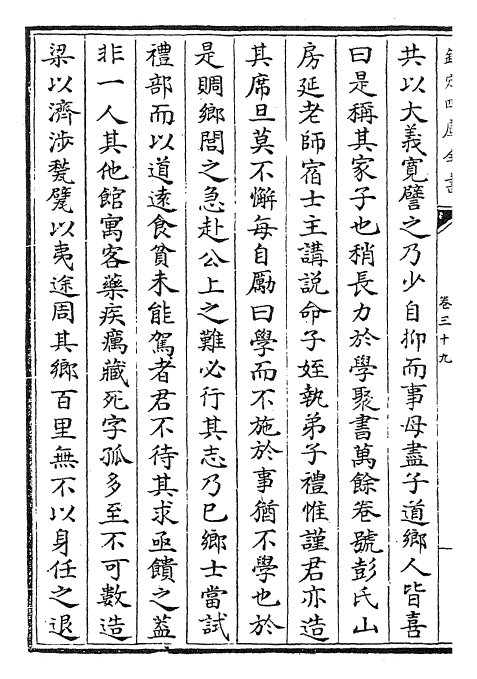 欽定四庫全書
卷三十九
共以大義寛譬之乃少自抑而事母盡子道鄉人皆喜
曰是稱其家子也稍長力於學聚書萬餘卷號彭氏山
房延老師宿士主講説命子姪執弟子禮惟謹君亦造
其席旦莫不懈每自勵曰學而不施於事猶不學也於
是賙鄉閭之急赴公上之難必行其志乃已鄉士當試
禮部而以道逺食貧未能駕者君不待其求亟饋之葢
非一人其他館寓客藥疾癘藏死字孤多至不可數造
梁以濟涉甃甓以夷途周其鄉百里無不以身任之退